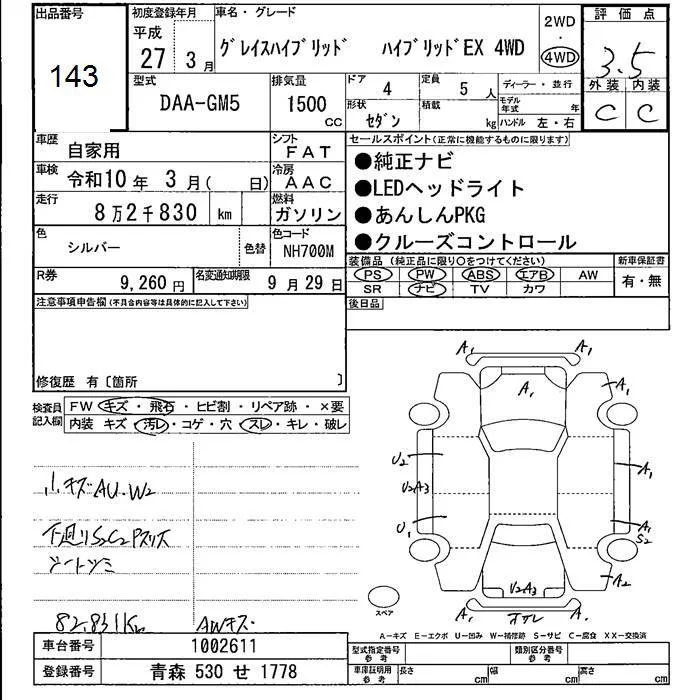 出品番号 初度登録年月 車名・グレード 2WD 評価点
143 平成 27 3月 グレイスハイブリッド ハイブリッドEX 4WD ・ 4WD 3.5
外装 内装
C C
型式 排気量 ドア 定員 ディーラー・並行
DAA-GM5 1500 cc 4 5人 モデル年式 年
形状 セダン 積載 kg ハンドル 左・右
車歴 自家用 シフト FAT
車検 令和10年 3月( 日) 冷房 AAC
走行 8万2千830 km 燃料 ガソリン
色 シルバー 色替 色コード NH700M
R券 9,260円 名変通知期限 9月29日
セールスポイント(正常に機能するものに限ります)
●純正ナビ
●LEDヘッドライト
●あんしんPKG
●クルーズコントロール
装備品(純正品に限り○をつけてください) 新車保証書
PS PW ABS エアB AW 有・無
SR ナビ TV カワ
後日品
注意事項申告欄(不具合内容等は具体的に記入して下さい)
修復歴 有〔箇所 〕
検査員記入欄 FW キズ・飛石・ヒビ割・リペア跡・×要
内装 キズ・汚レ・コゲ・穴・スレ・キレ・破レ
小キズAU・W2
下廻りS2C2Pスリキズ
シートシミ
82,831Km AWキズ・
A1 A1
A1 A1
U2
U2A3 A1
U1 A1
S2
U2A3 A2
A1 A1
スペア
A-キズ E-エクボ U-凹み W-補修跡 S-サビ C-腐食 XX-交換済
車台番号 1002611
登録番号 青森 530 せ 1778
型式指定番号 参考 類別区分番号 参考
車庫証明用 参考 長さ cm 幅 cm 高さ cm